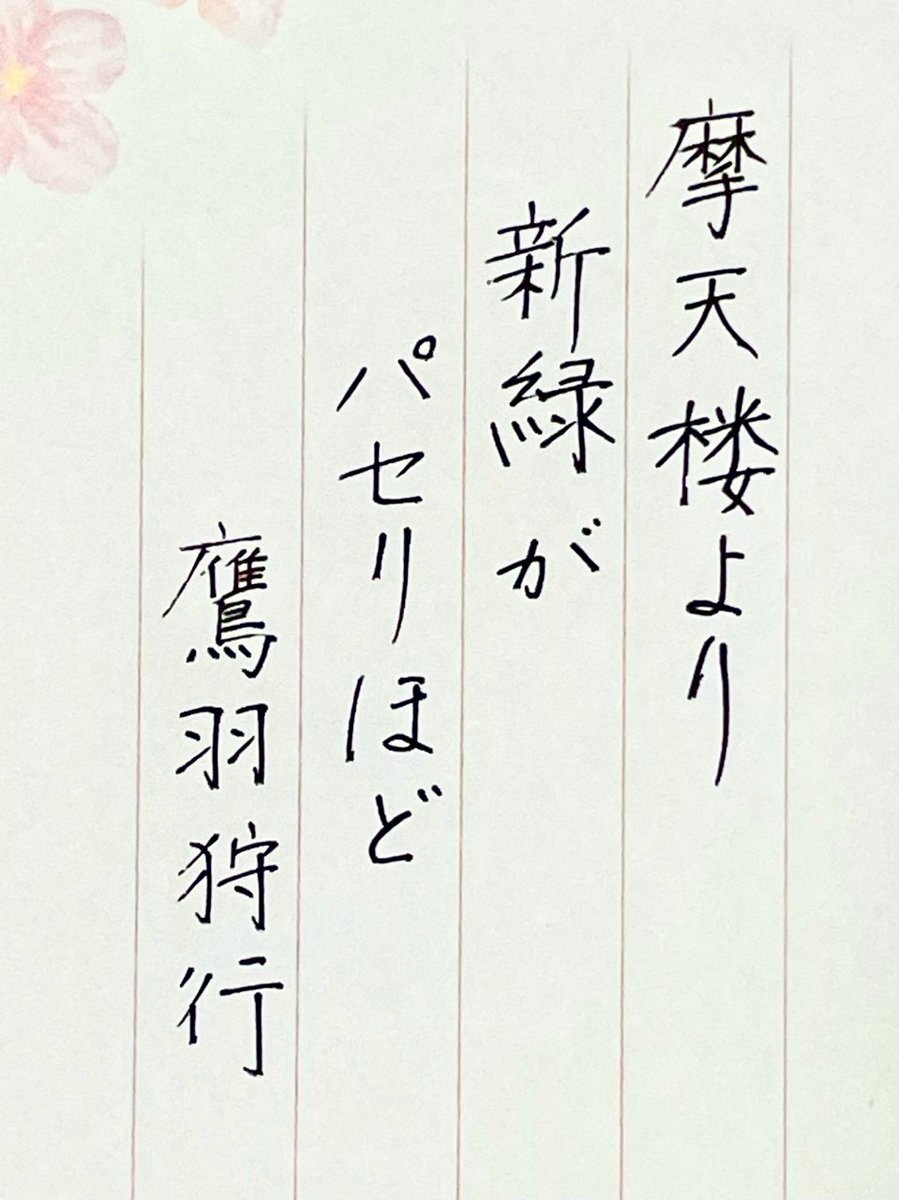 摩天楼より
新緑が
パセリほど
鷹羽狩行